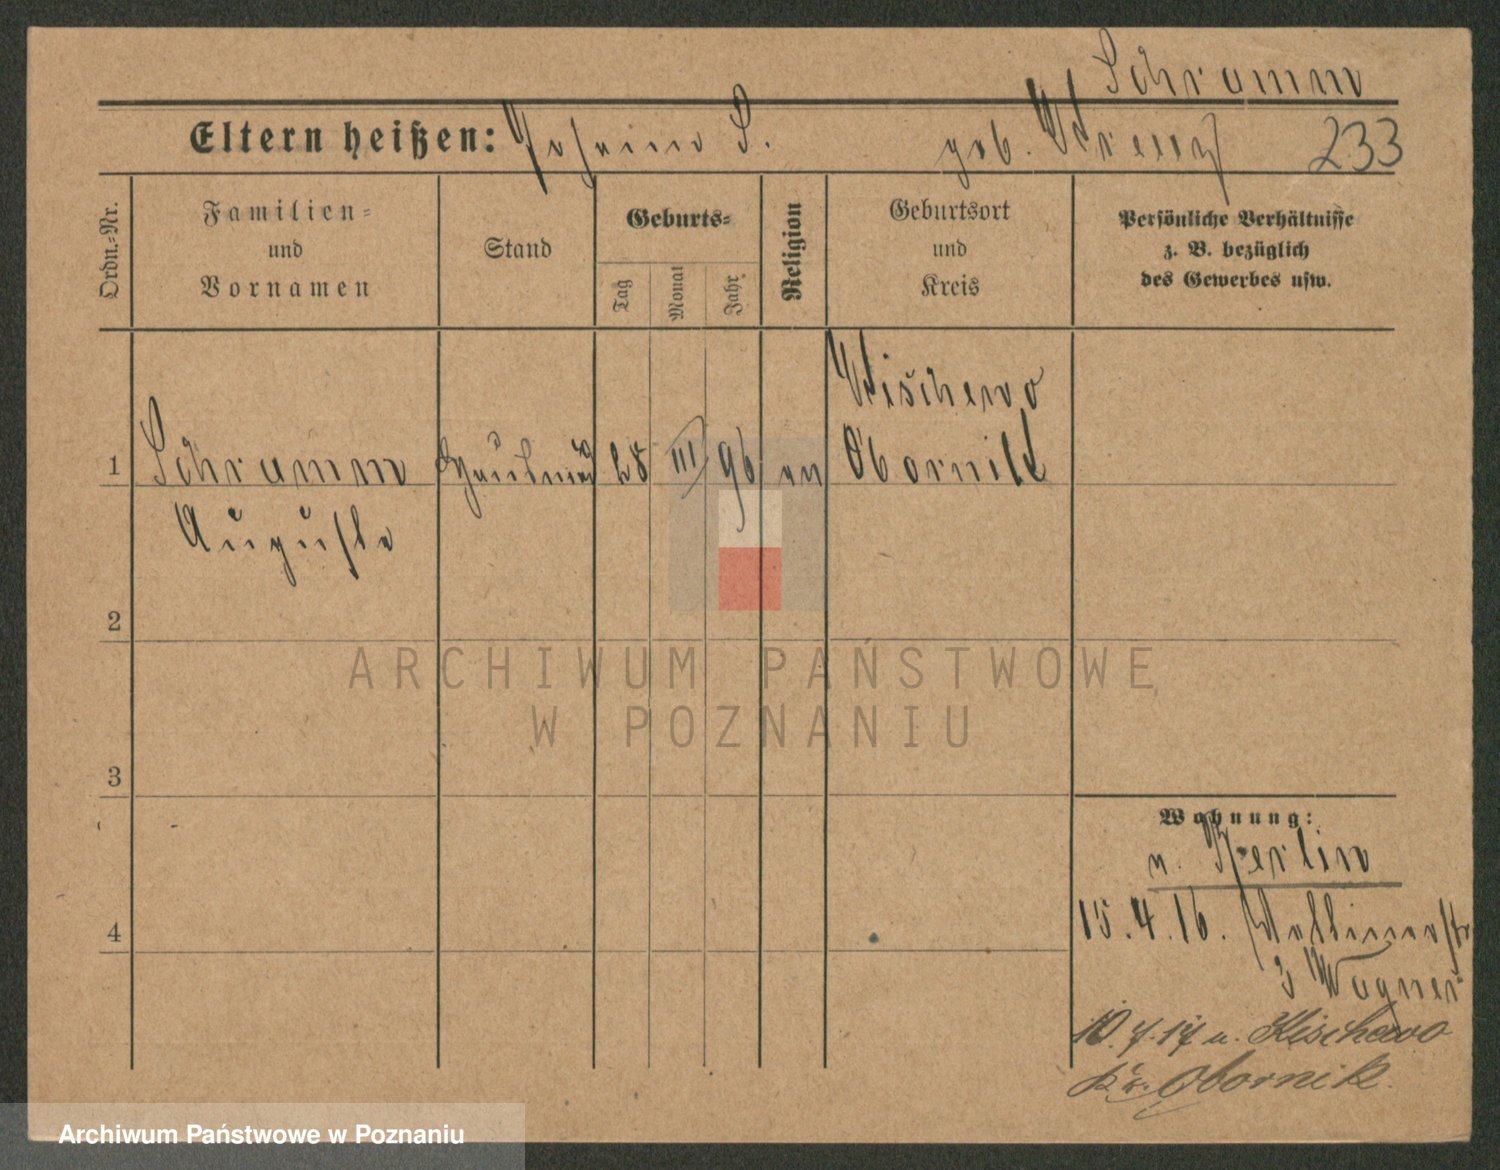 Schramm
Eltern heißen: S. geb. Kreuz 233
Ordn.-Nr.
Familien- und Vornamen
Stand
Geburts-
Tag
Monat
Jahr
Religion
Geburtsort und Kreis
Persönliche Verhältnisse z. B. bezüglich des Gewerbes usw.
Kischewo
1 Schramm 28 III 96 ev Obornik
Auguste
2
3
4
Wohnung:
n. Berlin
15.4.16.
3 Wagner
10.4.17 n. Kischewo
Kr. Obornik.
ARCHIWUM PAŃSTWOWE
W POZNANIU
Archiwum Państwowe w Poznaniu